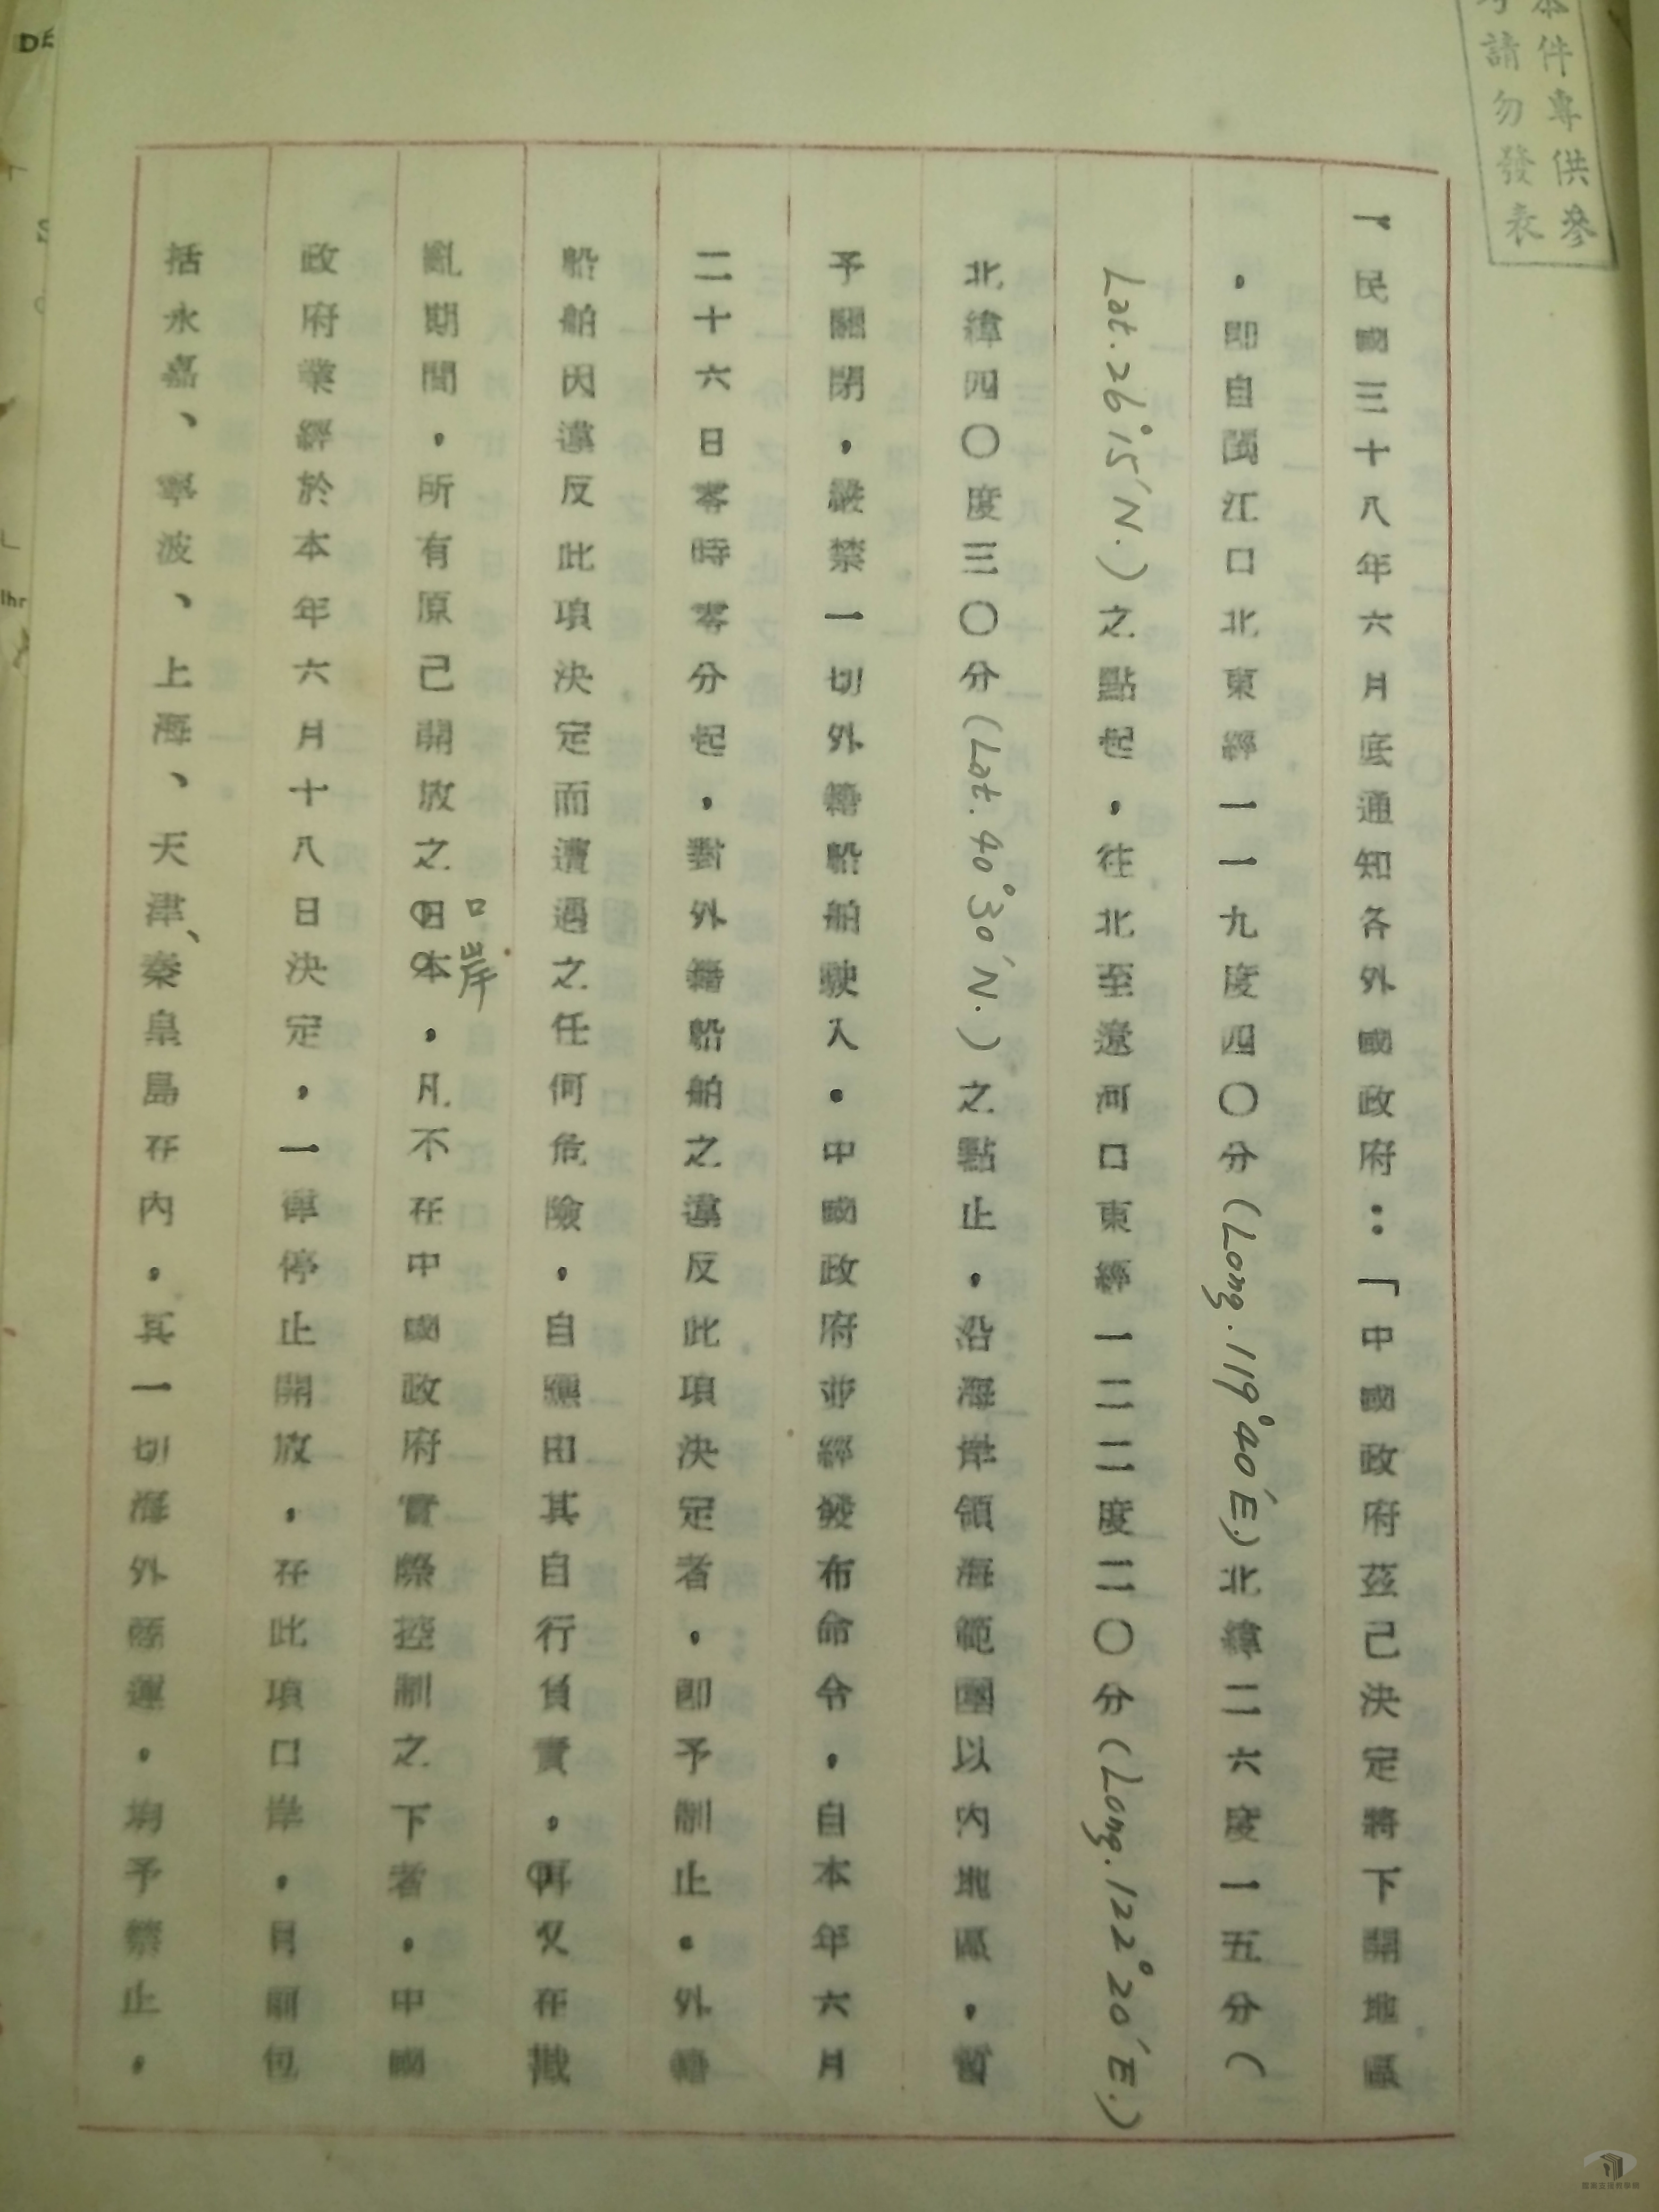 本件專供參
考請勿發表
一、民國三十八年六月底通知各外國政府：「中國政府茲已決定將下開地區
，即自閩江口北東經一一九度四〇分(Long. 119°40′E.)北緯二六度一五分(
Lat. 26°15′N.)之點起，往北至遼河口東經一二二度二〇分(Long. 122°20′E.)
北緯四〇度三〇分(Lat. 40°30′N.)之點止，沿海岸領海範圍以內地區，暫
予關閉，嚴禁一切外籍船舶駛入。中國政府並經發布命令，自本年六月
二十六日零時零分起，對外籍船舶之違反此項決定者，即予制止。外籍
船舶因違反此項決定而遭遇之任何危險，自應由其自行負責。再又在戡
亂期間，所有原已開放之日本口岸，凡不在中國政府實際控制之下者，中國
政府業經於本年六月十八日決定，一律停止開放，在此項口岸，目前包
括永嘉、寧波、上海、天津、秦皇島在內，其一切海外商運，均予禁止。